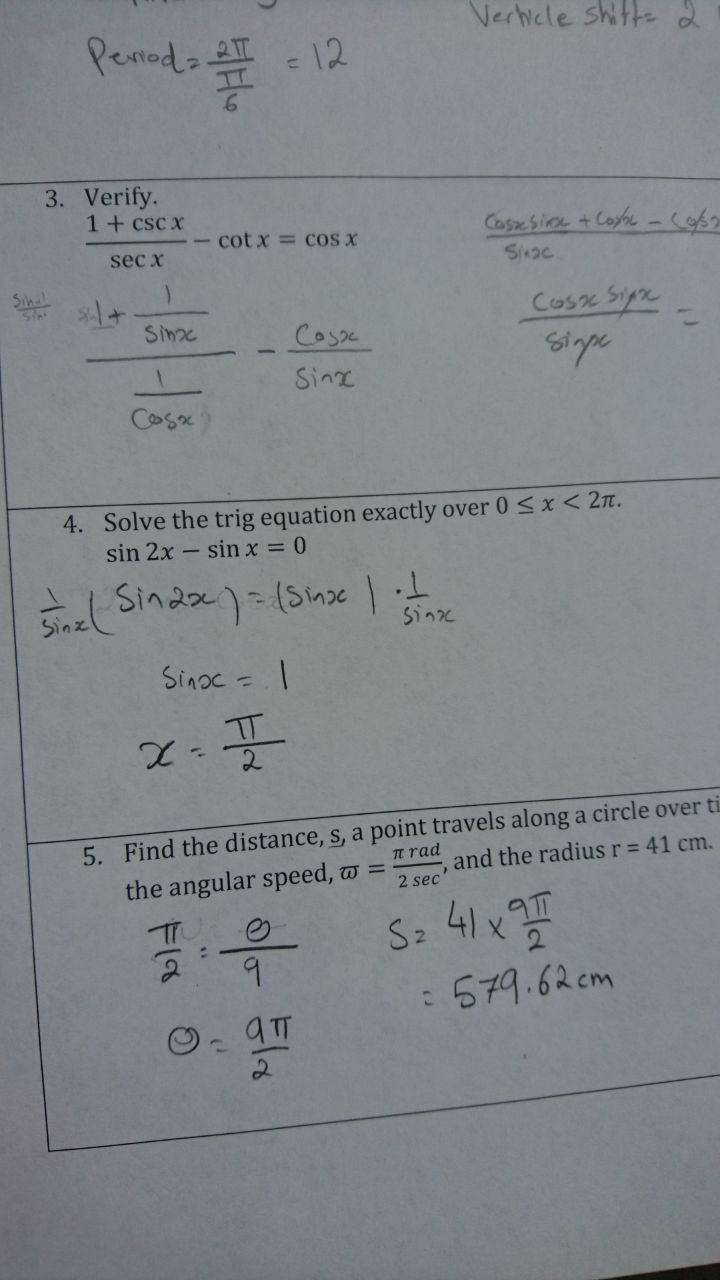 Verticle Shift= 2
Period= 2π / π/6 = 12
3. Verify.
(1 + csc x)/(sec x) − cot x = cos x
Cosx Sinx + Cosx − Cosx
Sinx
1 + 1/Sinx
1/Cosx
− Cosx/Sinx
Cosx Sinx / Sinx =
4. Solve the trig equation exactly over 0 ≤ x < 2π.
sin 2x − sin x = 0
1/Sinx (Sin2x) = (Sinx) · 1/Sinx
Sinx = 1
x = π/2
5. Find the distance, s, a point travels along a circle over ti
the angular speed, ϖ = π rad/2 sec, and the radius r = 41 cm.
π/2 = θ/9
S= 41 × 9π/2
= 579.62cm
θ = 9π/2